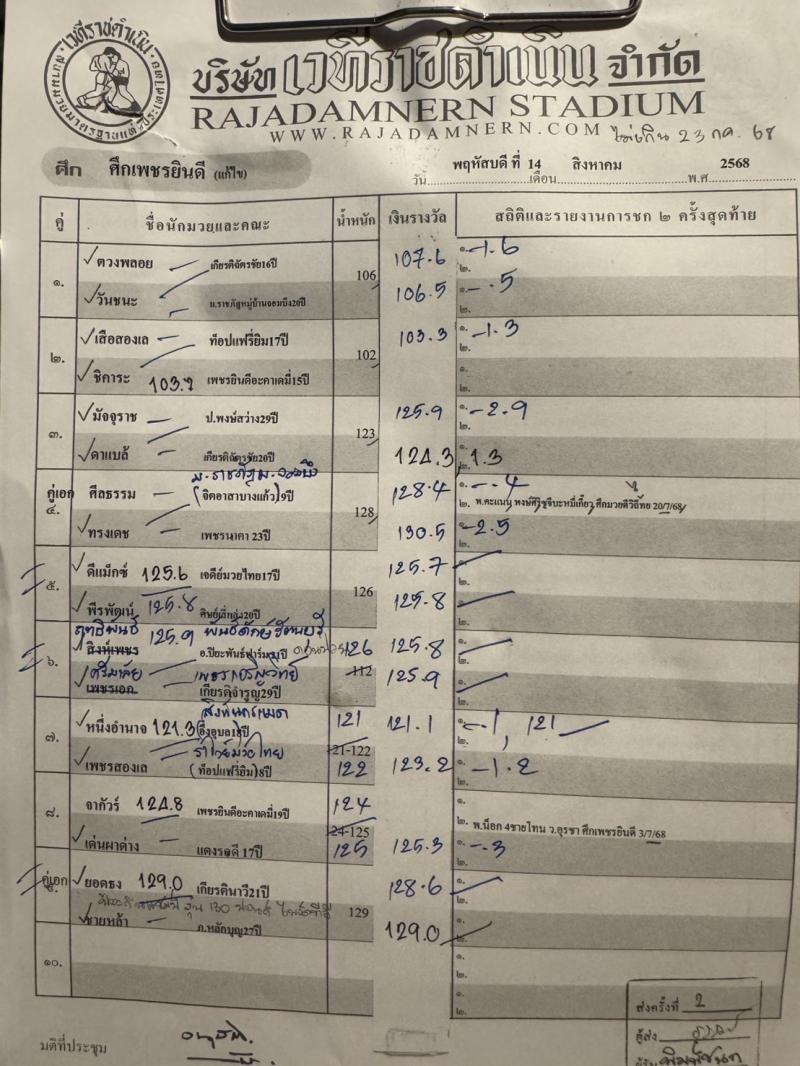 เวทีราชดำเนิน
บริษัท เวทีราชดำเนิน จำกัด
RAJADAMNERN STADIUM
WWW.RAJADAMNERN.COM
ไม่เกิน 23 กค. 68
ศึก ศึกเพชรยินดี (แก้ไข)
วัน พฤหัสบดี ที่ 14 เดือน สิงหาคม พ.ศ 2568
คู่ ชื่อนักมวยและคณะ น้ำหนัก เงินรางวัล สถิติและรายงานการชก ๒ ครั้งสุดท้าย
ตวงพลอย เกียรติฉัตรชัย16ปี 107.6 ๑. -1.6
๑. 106 ๒.
วันชนะ ม.ราชภัฏหมู่บ้านจอมบึง20ปี 106.5 ๑. -.5
๒.
เสือสองเล ท็อปแฟรี่ยิม17ปี 103.3 ๑. -1.3
๒. 102 ๒.
ชิคาระ 103.7 เพชรยินดีอะคาเดมี่15ปี ๑.
๒.
มัจจุราช ป.พงษ์สว่าง29ปี 125.9 ๑. -2.9
๓. 123 ๒.
ดาแบล้ เกียรติฉัตรชัย20ปี 124.3 1.3
๒.
คู่เอก ศีลธรรม (จิตอาสาบางแก้ว)9ปี 128.4 ๑. -.4
๔. 128 ๒.
ทรงเดช เพชรนาคา 23ปี 130.5 -2.5
๒.
ดีแม็กซ์ 125.6 เจดีย์มวยไทย17ปี 125.7 ๑.
๕. 126 ๒.
พีรพัฒน์ 125.8 125.8 ๑.
๒.
ฤทธิพันธ์ 125.9
สิงห์เพชร 126 125.8 ๑.
๖. 112 ๒.
125.9 ๑.
เพชรเอก เกียรติจำรูญ29ปี ๒.
หนึ่งอำนาจ 121.3 121 121.1 ๑. -.1, 121
๗. 121-122 ๒.
เพชรสองเล (ท็อปแฟรี่ยิม)8ปี 122 123.2 ๑. -1.2
๒.
จากัวร์ 124.8 เพชรยินดีอะคาเดมี่19ปี 124 ๑.
๘. 124-125 ๒. พ.น็อก 4ชายโทน ว.อุรชา ศึกเพชรยินดี 3/7/68
เด่นผาด่าง 17ปี 125 125.3 ๑. -.3
๒.
คู่เอก ยอดธง 129.0 เกียรตินาวี21ปี 128.6 ๑.
129 ๒.
ชายหล้า ภ.หลักบุญ27ปี 129.0 ๑.
๒.
๑๐. ๑.
๒.
๑.
๒.
มติที่ประชุม
ส่งครั้งที่ 2
ผู้ส่ง